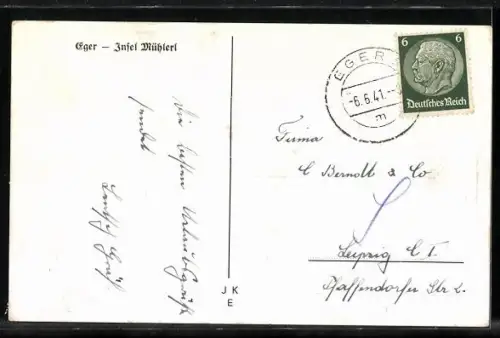 Eger — Insel Mühlerl
Die besten Urlaubsgrüße
sendet
EGER
-6.6.41.--
m
6 6
Deutsches Reich
Firma
C Berndt & Co
Leipzig C 1.
Pfaffendorfer Str 2.
J K
E